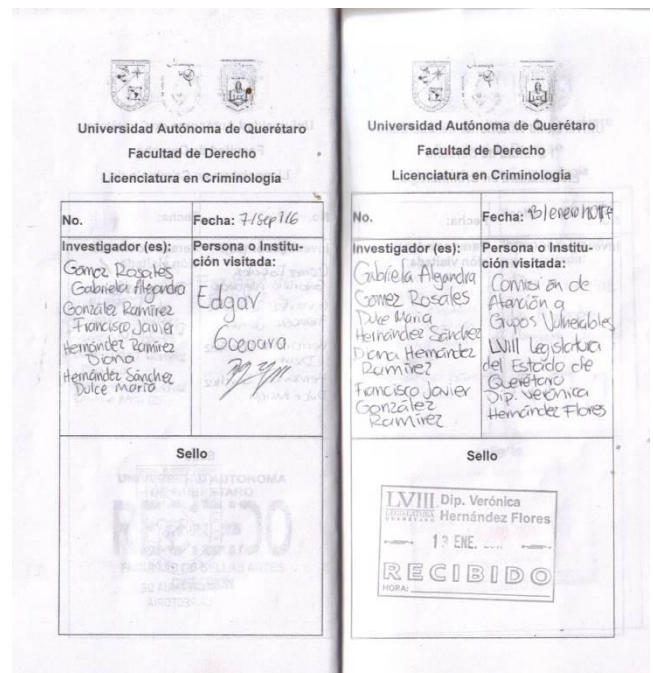 Universidad Autónoma de Querétaro
Facultad de Derecho
Licenciatura en Criminología
No.
Fecha: 7/Sep/16
Investigador (es):
Gómez Rosales
Gabriela Alejandra
González Ramírez
Francisco Javier
Hernández Ramírez
Diana
Hernández Sánchez
Dulce María
Persona o Institu-
ción visitada:
Edgar
Sello
Universidad Autónoma de Querétaro
Facultad de Derecho
Licenciatura en Criminología
No.
Fecha:
Investigador (es):
Gabriela Alejandra
Gómez Rosales
Dulce María
Hernández Sánchez
Diana Hernández
Ramírez
Francisco Javier
González
Ramírez
Persona o Institu-
ción visitada:
Comisión de
Atención a
Grupos Vulnerables
LVIII Legislatura
del Estado de
Querétaro
Dip. Verónica
Hernández Flores
Sello
LVIII Dip. Verónica
LEGISLATURA Hernández Flores
QUERÉTARO
13 ENE.
RECIBIDO
HORA: